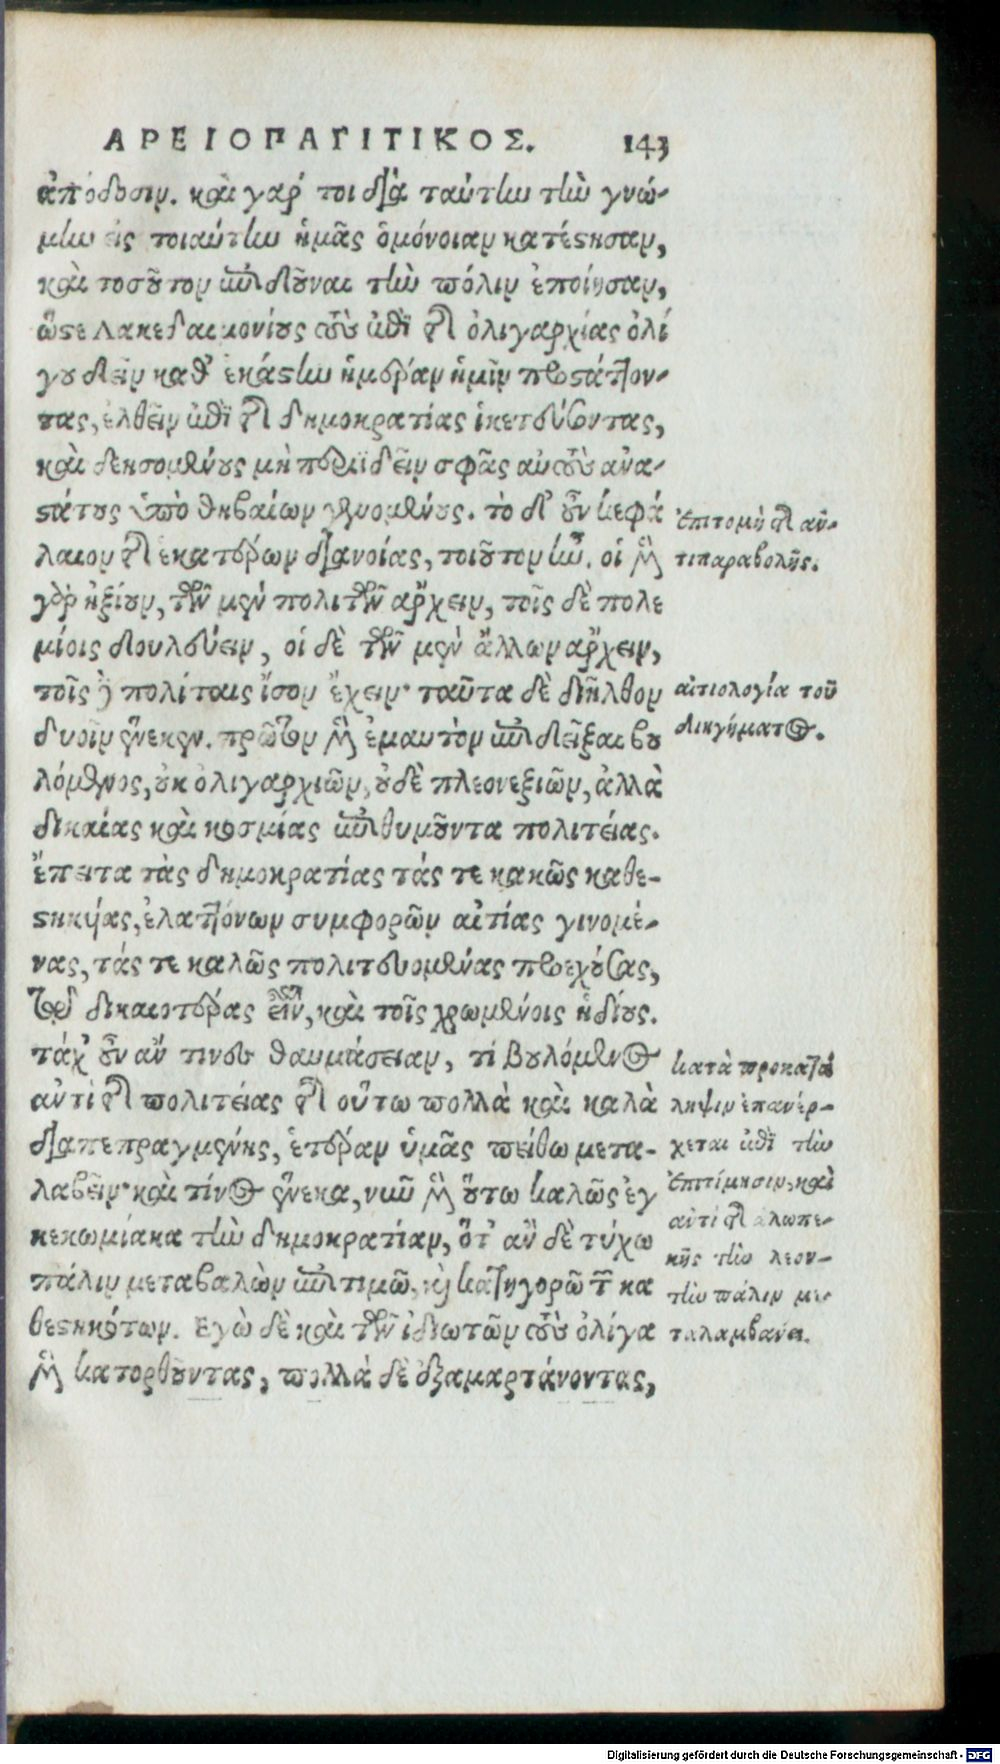 ΑΡΕΙΟΠΑΓΙΤΙΚΟΣ. 143
ἀπόδοσιν. καὶ γάρ τοι διὰ ταύτην τὴν γνώ-
μην εἰς τοιαύτην ἡμᾶς ὁμόνοιαν κατέστησαν,
καὶ τοσοῦτον ἐπιδοῦναι τὴν πόλιν ἐποίησαν,
ὥστε Λακεδαιμονίους τοὺς ἐπὶ τῆς ὀλιγαρχίας ὀλί
γου δεῖν καθ' ἑκάστην ἡμέραν ἡμῖν προστάττον-
τας, ἐλθεῖν ἐπὶ τῆς δημοκρατίας ἱκετεύσοντας,
καὶ δεησομένους μὴ περιϊδεῖν σφᾶς αὐτοὺς ἀνα-
στάτους ὑπὸ θηβαίων γενομένους. τὸ δ' οὖν κεφά
λαιον τῆς ἑκατέρων διανοίας, τοιοῦτον ἦν. οἱ μὲν
γὰρ ἠξίουν, τῶν μὲν πολιτῶν ἄρχειν, τοῖς δὲ πολε
μίοις δουλεύειν, οἱ δὲ τῶν μὲν ἄλλων ἄρχειν,
τοῖς δὲ πολίταις ἴσον ἔχειν· ταῦτα δὲ διῆλθον
δυοῖν ἕνεκεν. πρῶτον μὲν ἐμαυτὸν ἐπιδεῖξαι βου
λόμενος, οὐκ ὀλιγαρχιῶν, οὐδὲ πλεονεξιῶν, ἀλλὰ
δικαίας καὶ κοσμίας ἐπιθυμοῦντα πολιτείας.
ἔπειτα τὰς δημοκρατίας τάς τε κακῶς καθε-
στηκυίας, ἐλαττόνων συμφορῶν αἰτίας γινομέ-
νας, τάς τε καλῶς πολιτευομένας προεχούσας,
τῷ δικαιοτέρας εἶναι, καὶ τοῖς χρωμένοις ἡδίους.
τάχ' οὖν ἄν τινες θαυμάσειαν, τί βουλόμενος
ἀντὶ τῆς πολιτείας τῆς οὕτω πολλὰ καὶ καλὰ
διαπεπραγμένης, ἑτέραν ὑμᾶς πείθω μετα-
λαβεῖν· καὶ τίνος ἕνεκα, νῦν μὲν οὕτω καλῶς ἐγ
κεκωμίακα τὴν δημοκρατίαν, ὅτ' ἂν δὲ τύχω
πάλιν μεταβαλὼν ἐπιτιμῶ, καὶ κατηγορῶ τῶν κα
θεστηκότων. Εγὼ δὲ καὶ τῶν ἰδιωτῶν τοὺς ὀλίγα
μὲν κατορθοῦντας, πολλὰ δὲ ἐξαμαρτάνοντας,
Ἐπιτομὴ τῆς ἀν-
τιπαραβολῆς.
αἰτιολογία τοῦ
διηγήματος.
κατὰ προκατά
ληψιν ἐπανέρ-
χεται ἐπὶ τὴν
ἐπιτίμησιν, καὶ
ἀντὶ τῆς ἀλωπε-
κῆς τὴν λεον-
τῆν πάλιν με-
ταλαμβάνει.
Digitalisierung gefördert durch die Deutsche Forschungsgemeinschaft - DFG